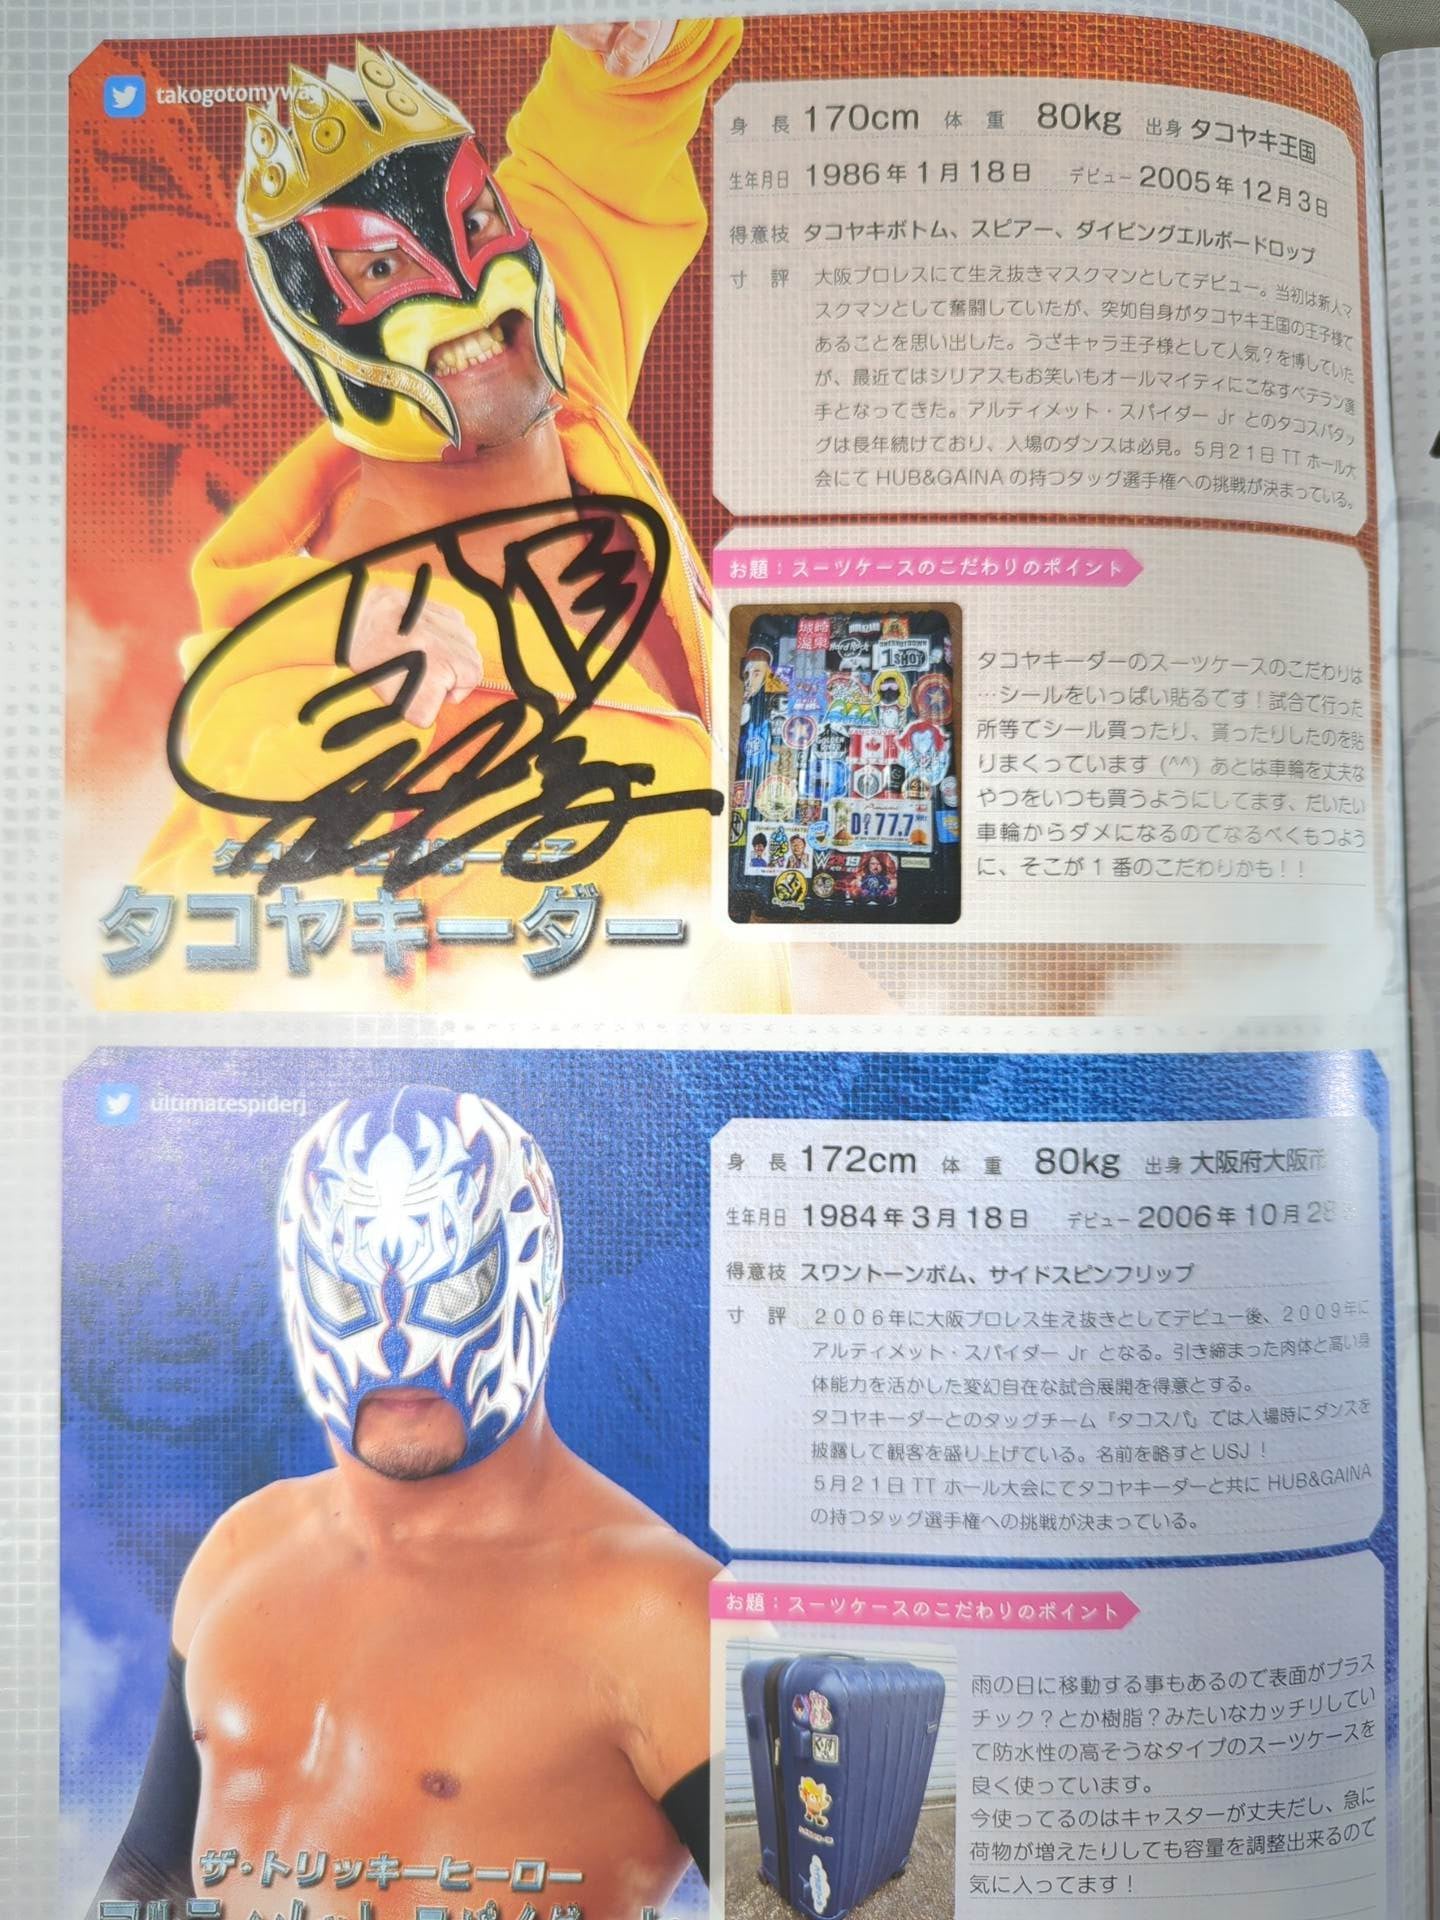 takogotomyway
身長 170cm 体重 80kg 出身 タコヤキ王国
生年月日 1986年1月18日 デビュー 2005年12月3日
得意技 タコヤキボトム、スピアー、ダイビングエルボードロップ
寸評 大阪プロレスにて生え抜きマスクマンとしてデビュー。当初は新人マ
スクマンとして奮闘していたが、突如自身がタコヤキ王国の王子様で
あることを思い出した。うざキャラ王子様として人気？を博していた
が、最近ではシリアスもお笑いもオールマイティにこなすベテラン選
手となってきた。アルティメット・スパイダー Jr とのタコスパタッ
グは長年続けており、入場のダンスは必見。5月21日 TT ホール大
会にて HUB&GAINA の持つタッグ選手権への挑戦が決まっている。
お題：スーツケースのこだわりのポイント
タコヤキーダーのスーツケースのこだわりは
…シールをいっぱい貼るです！試合で行った
所等でシール買ったり、貰ったりしたのを貼
りまくっています (^^) あとは車輪を丈夫な
やつをいつも買うようにしてます、だいたい
車輪からダメになるのでなるべくもつよう
に、そこが1番のこだわりかも！！
タコヤキーダー
ultimatespiderj
身長 172cm 体重 80kg 出身 大阪府大阪市
生年月日 1984年3月18日 デビュー 2006年10月28
得意技 スワントーンボム、サイドスピンフリップ
寸評 2006年に大阪プロレス生え抜きとしてデビュー後、2009年に
アルティメット・スパイダー Jr となる。引き締まった肉体と高い身
体能力を活かした変幻自在な試合展開を得意とする。
タコヤキーダーとのタッグチーム『タコスパ』では入場時にダンスを
披露して観客を盛り上げている。名前を略すと USJ！
5月21日 TT ホール大会にてタコヤキーダーと共に HUB&GAINA
の持つタッグ選手権への挑戦が決まっている。
お題：スーツケースのこだわりのポイント
雨の日に移動する事もあるので表面がプラス
チック？とか樹脂？みたいなカッチリしてい
て防水性の高そうなタイプのスーツケースを
良く使っています。
今使ってるのはキャスターが丈夫だし、急に
荷物が増えたりしても容量を調整出来るので
気に入ってます！
ザ・トリッキーヒーロー